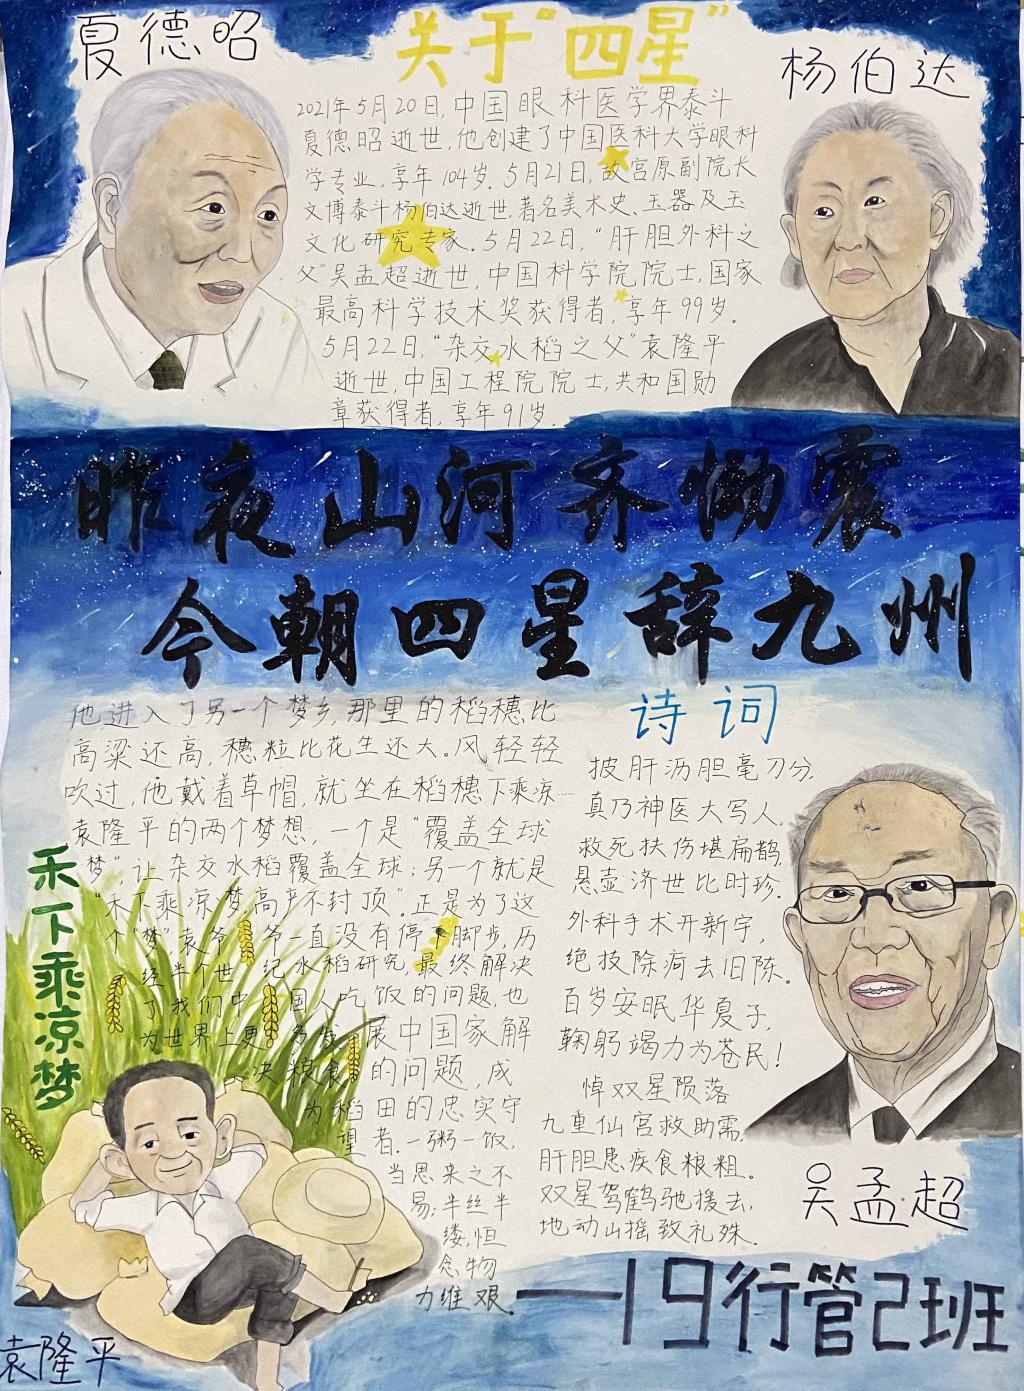 夏德昭
关于“四星”
杨伯达
2021年5月20日,中国眼科医学界泰斗
夏德昭逝世,他创建了中国医科大学眼科
学专业,享年104岁.5月21日,故宫原副院长
文博泰斗杨伯达逝世,著名美术史、玉器及玉
文化研究专家.5月22日,“肝胆外科之
父”吴孟超逝世,中国科学院院士,国家
最高科学技术奖获得者,享年99岁.
5月22日,“杂交水稻之父”袁隆平
逝世,中国工程院院士,共和国勋
章获得者,享年91岁.
昨夜山河齐恸震
今朝四星辞九州
他进入了另一个梦乡,那里的稻穗比
高粱还高,穗粒比花生还大。风轻轻
吹过,他戴着草帽,就坐在稻穗下乘凉……
袁隆平的两个梦想,一个是“覆盖全球
梦”,让杂交水稻覆盖全球;另一个就是
“禾下乘凉梦,高产不封顶”.正是为了这
个“梦”袁爷爷一直没有停下脚步,历
经半个世纪水稻研究,最终解决
了我们中国人吃饭的问题,也
为世界上更多发展中国家解
决粮食的问题,成
为稻田的忠实守
望者.一粥一饭,
当思来之不
易;半丝半
缕,恒
念物
力维艰.
禾下乘凉梦
袁隆平
诗词
披肝沥胆毫刀分,
真乃神医大写人.
救死扶伤堪扁鹊,
悬壶济世比时珍.
外科手术开新宇,
绝技除疴去旧陈.
百岁安眠华夏子,
鞠躬竭力为苍民!
悼双星陨落
九重仙宫救助需,
肝胆患疾食粮粗.
双星驾鹤驰援去,
地动山摇致礼殊.
吴孟超
——19行管2班